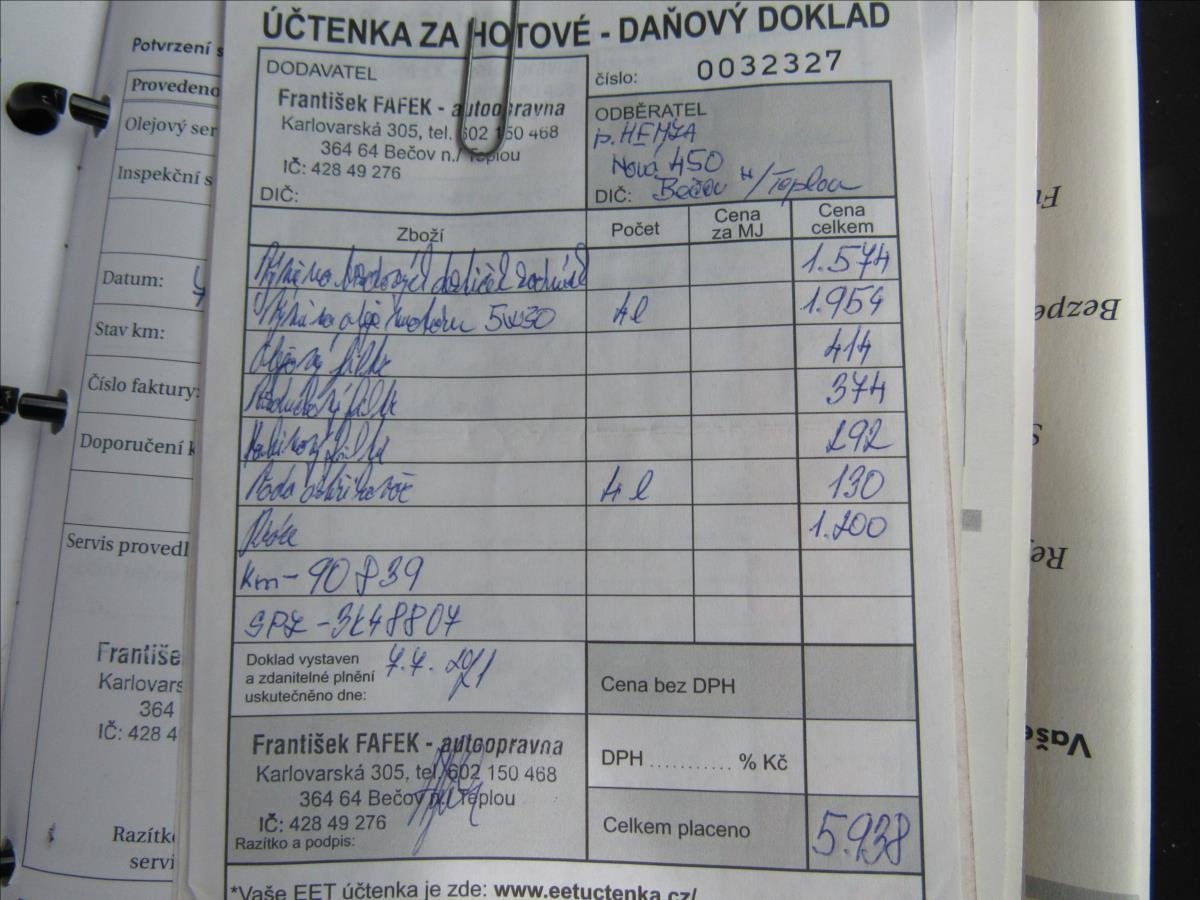 ÚČTENKA ZA HOTOVÉ - DAŇOVÝ DOKLAD
číslo: 0032327
DODAVATEL
František FAFEK - autoopravna
Karlovarská 305, tel. 602 150 468
364 64 Bečov n./Teplou
IČ: 428 49 276
DIČ:
ODBĚRATEL
p. HEMZA
Nová 450
DIČ: Bečov n/Teplou
Zboží Počet Cena za MJ Cena celkem
Výměna 1.574
Výměna oleje motoru 5W30 4l 1.954
Olejový filtr 414
Vzduchový filtr 374
Kabinový filtr 292
Voda ostřikovače 4l 130
Práce 1.200
Km - 90 839
SPZ - 3K48807
Doklad vystaven
a zdanitelné plnění
uskutečněno dne:
Cena bez DPH
František FAFEK - autoopravna
Karlovarská 305, tel. 602 150 468
364 64 Bečov n./Teplou
IČ: 428 49 276
Razítko a podpis:
DPH ........... % Kč
Celkem placeno 5.938
*Vaše EET účtenka je zde: www.eetuctenka.cz/
Potvrzení s
Provedeno
Olejový ser
Inspekční s
Datum:
Stav km:
Číslo faktury:
Doporučení k
Servis provedl
Františe
Karlovars
364
IČ: 428 4
Razítko
servi
Bezpe
Vaše